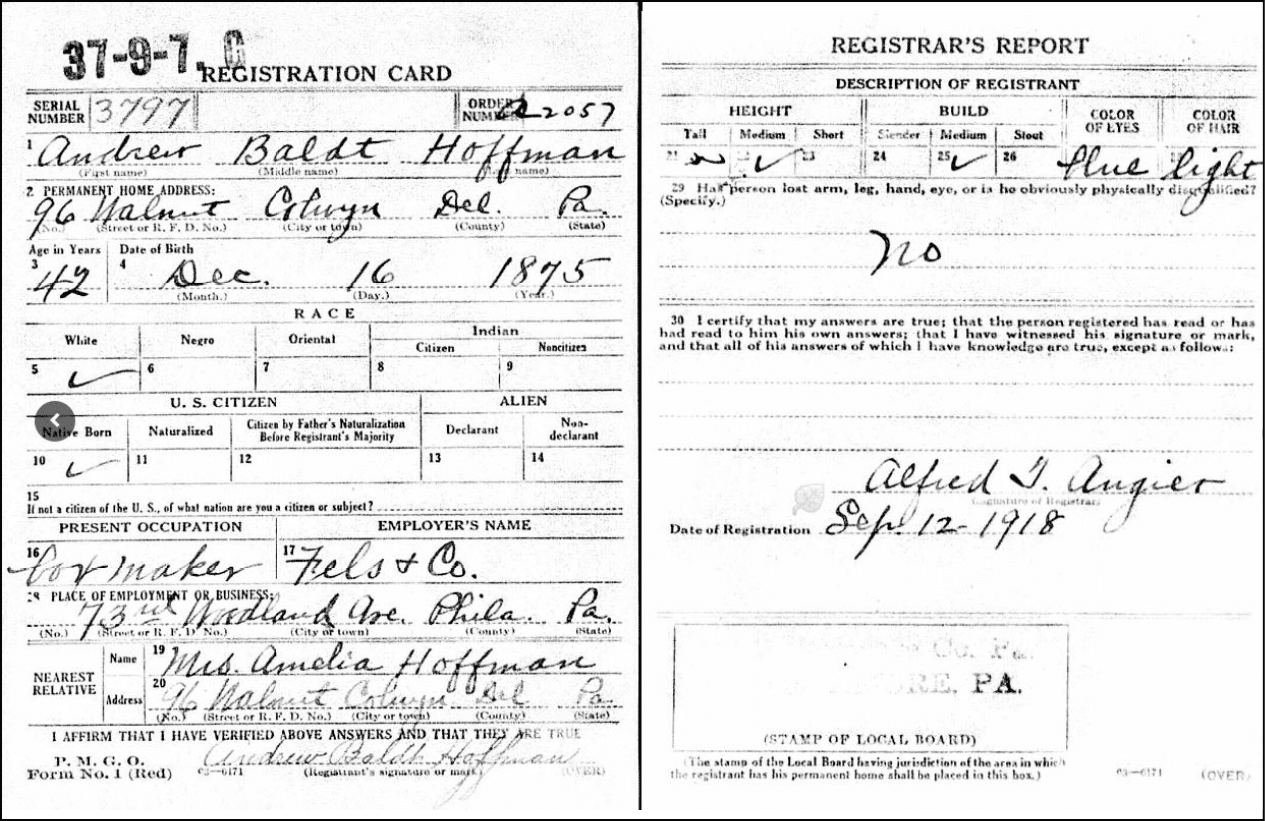 37-9-7. C
REGISTRATION CARD
SERIAL NUMBER 3797 ORDER NUMBER 2057
1 Andrew Baldt Hoffman
(First name) (Middle name) (Last name)
2 PERMANENT HOME ADDRESS:
96 Walnut Colwyn Del. Pa.
(No.) (Street or R. F. D. No.) (City or town) (County) (State)
Age in Years Date of Birth
3 42 4 Dec. 16 1875
(Month.) (Day.) (Year.)
RACE
White Negro Oriental Indian
Citizen Noncitizen
5 ✓ 6 7 8 9
U. S. CITIZEN ALIEN
Native Born Naturalized Citizen by Father's Naturalization Before Registrant's Majority Declarant Non-declarant
10 ✓ 11 12 13 14
15
If not a citizen of the U. S., of what nation are you a citizen or subject?
PRESENT OCCUPATION EMPLOYER'S NAME
16 box maker 17 Fels & Co.
18 PLACE OF EMPLOYMENT OR BUSINESS:
73rd Woodland Ave. Phila. Pa.
(No.) (Street or R. F. D. No.) (City or town) (County) (State)
NEAREST RELATIVE
Name 19 Mrs. Amelia Hoffman
Address 20 96 Walnut Colwyn Del Pa.
(No.) (Street or R. F. D. No.) (City or town) (County) (State)
I AFFIRM THAT I HAVE VERIFIED ABOVE ANSWERS AND THAT THEY ARE TRUE
P. M. G. O.
Form No. 1 (Red) 03—6171 Andrew Baldt Hoffman
(Registrant's signature or mark) (OVER)
REGISTRAR'S REPORT
DESCRIPTION OF REGISTRANT
HEIGHT BUILD COLOR OF EYES COLOR OF HAIR
Tall Medium Short Slender Medium Stout
21 22 ✓ 23 24 25 ✓ 26 blue light
29 Has person lost arm, leg, hand, eye, or is he obviously physically disqualified?
(Specify.)
no
30 I certify that my answers are true; that the person registered has read or has
had read to him his own answers; that I have witnessed his signature or mark,
and that all of his answers of which I have knowledge are true, except as follows:
Alfred T. Angier
(Signature of Registrar)
Date of Registration Sep. 12-1918
Co. Pa.
PA.
(STAMP OF LOCAL BOARD)
(The stamp of the Local Board having jurisdiction of the area in which
the registrant has his permanent home shall be placed in this box.)
03—6171 (OVER)